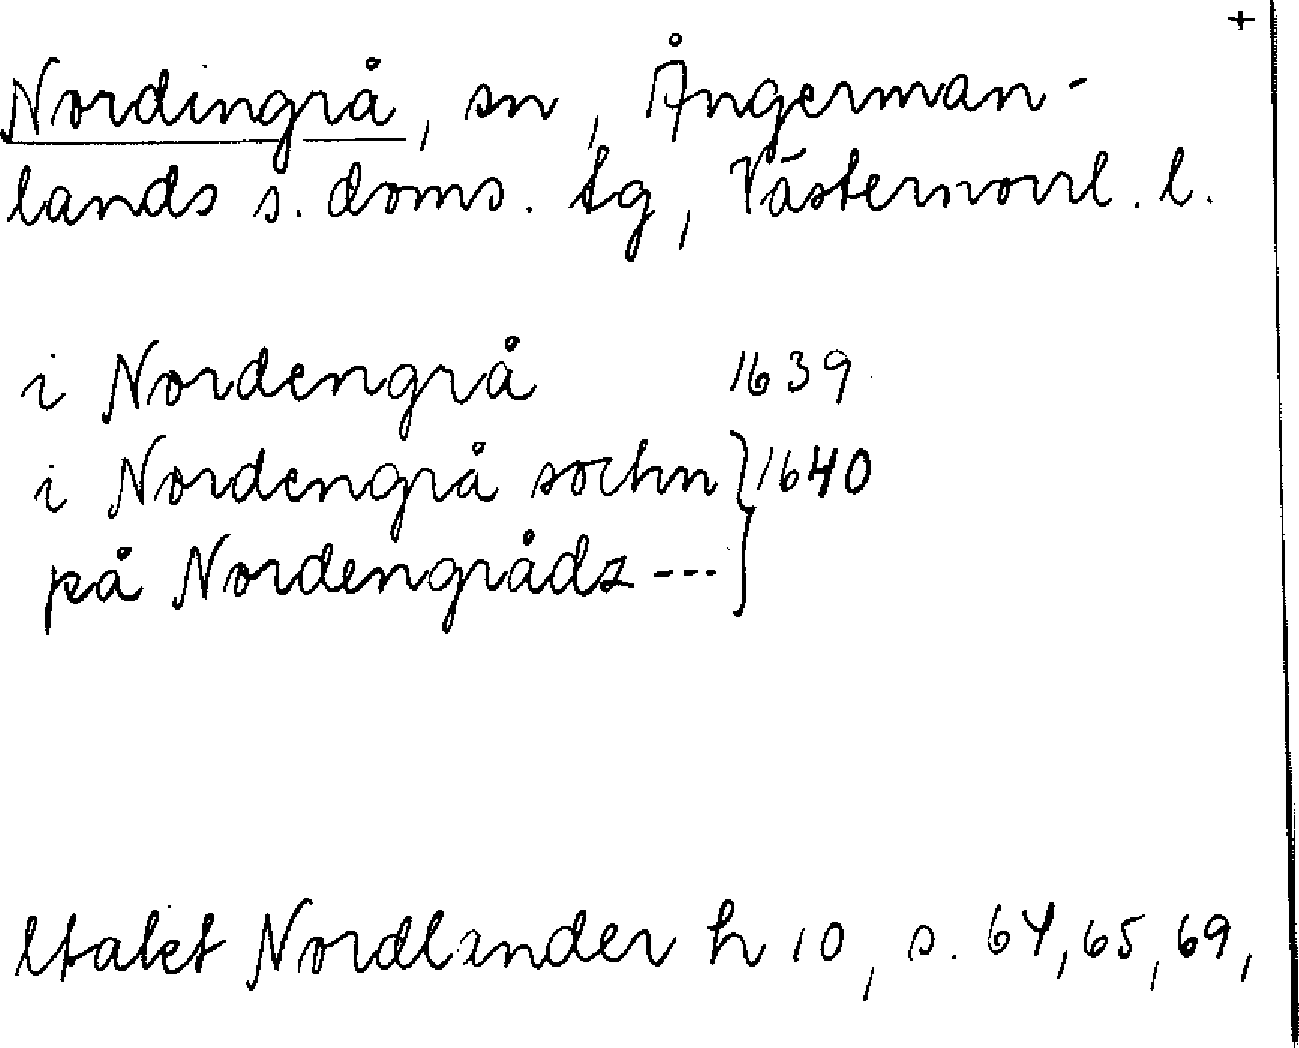 +
Nordingrå, sn, Ångerman-
lands s. doms. tg, Västernorrl. l.
i Nordengrå 1639
i Nordengrå sochn } 1640
på Nordengrådz ---
Utalet Nordlander h 10, s. 64, 65, 69,